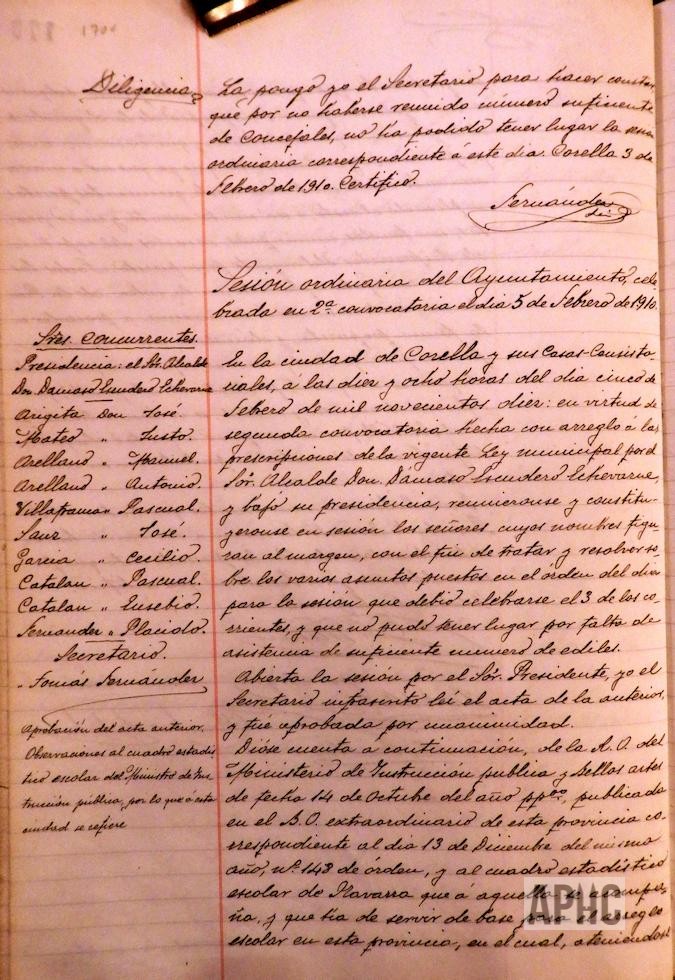 Diligencia
La pongo yo el Secretario para hacer constar
que por no haberse reunido número suficiente
de Concejales, no ha podido tener lugar la sesión
ordinaria correspondiente á este dia. Corella 3 de
Febrero de 1910. Certifico.
Fernández
Sesión ordinaria del Ayuntamiento, cele-
brada en 2ª convocatoria el dia 5 de Febrero de 1910.
Sres. Concurrentes.
Presidencia: el Sór. Alcalde
Don Damaso Escudero Echevarne
Arigita Don José.
Mateo " Justo.
Arellano " Manuel.
Arellano " Antonio.
Villafranca " Pascual.
Sanz " José.
Garcia " Cecilio.
Catalan " Pascual.
Catalan " Eusebio.
Fernandez " Placido.
Secretario.
Tomás Fernandez
Aprobación del acta anterior.
Observaciones al cuadro estadis-
tico escolar del Ministro de Ins-
trucción pública, por lo que á esta
ciudad se refiere
En la ciudad de Corella y sus Casas-Consisto-
riales, á las diez y ocho horas del dia cinco de
Febrero de mil novecientos diez: en virtud de
segunda convocatoria hecha con arreglo á las
prescripciones de la vigente Ley municipal por el
Sór. Alcalde Don Dámaso Escudero Echevarne,
y bajo su presidencia, reunieronse y constitu-
yeronse en sesión los señores cuyos nombres figu-
ran al margen, con el fin de tratar y resolver so-
bre los varios asuntos puestos en el orden del dia
para la sesión que debió celebrarse el 3 de los co-
rrientes, y que no pudo tener lugar por falta de
asistencia de suficiente número de ediles.
Abierta la sesión por el Sór. Presidente, yo el
Secretario infrascrito leí el acta de la anterior,
y fué aprobada por unanimidad.
Dióse cuenta á continuación, de la R. O. del
Ministerio de Instrucción publica y Bellas artes
de fecha 14 de Octubre del año ppdo, publicada
en el B. O. extraordinario de esta provincia co-
rrespondiente al dia 13 de Diciembre del mismo
año, nº 148 de órden, y al cuadro estadístico
escolar de Navarra que á aquella se acompa-
ña, y que ha de servir de base para el arreglo
escolar en esta provincia, en el cual, ateniendose
APHC